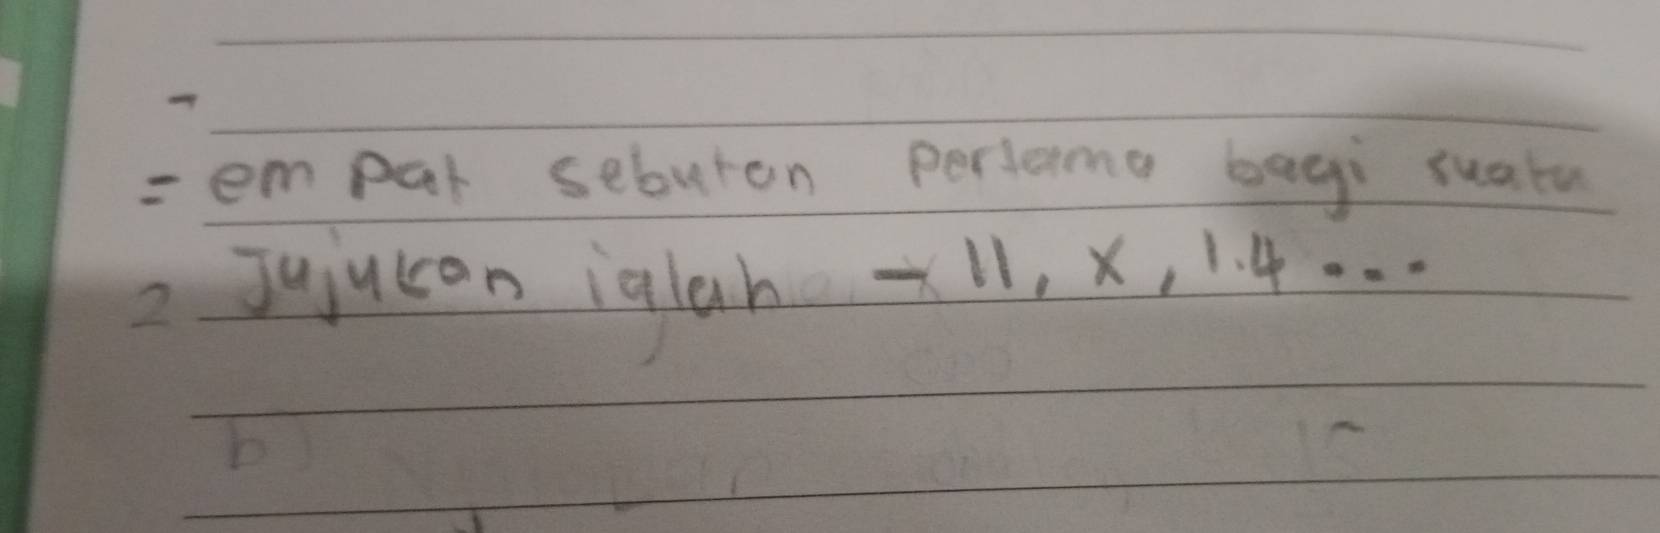 -
= em pat sebutan Pertama bagi suatu
2 Jujukan ialah - 11, x, 1.4 ...
b)